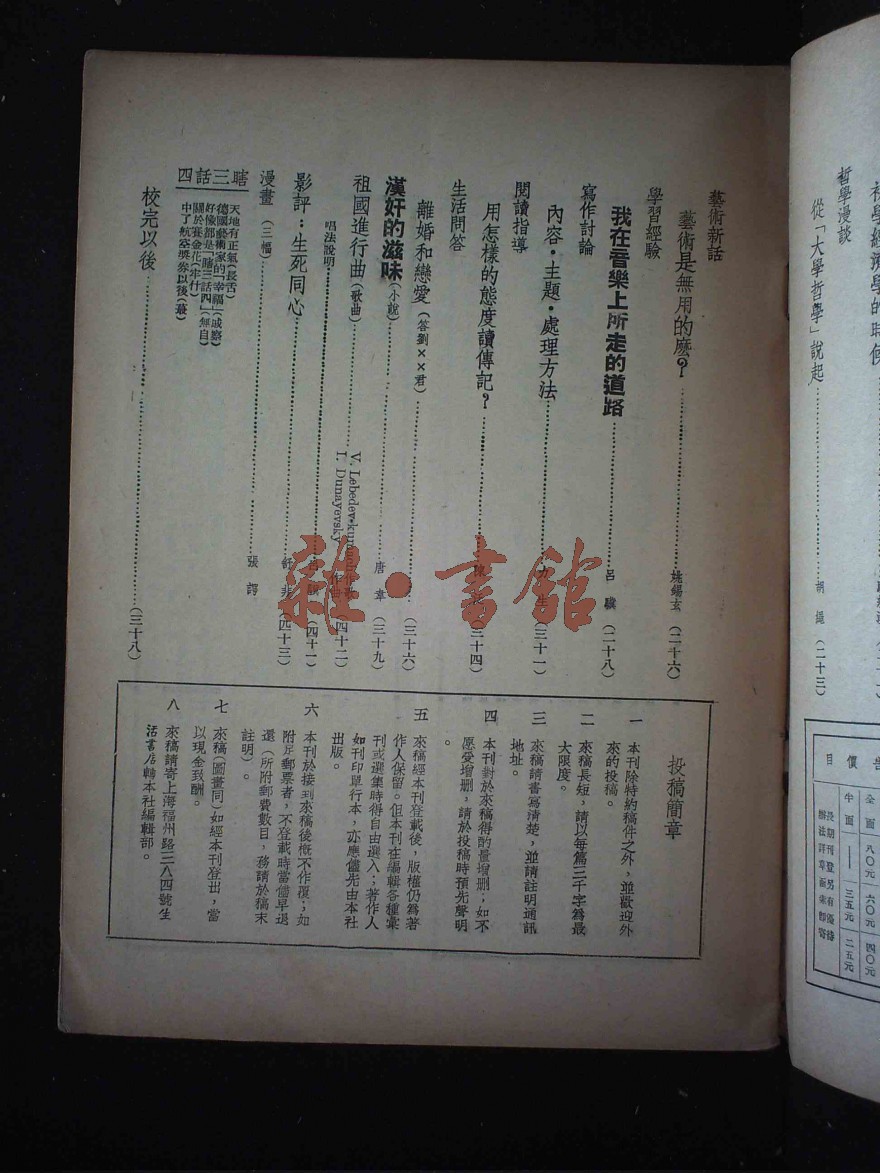 哲學漫談
從「大學哲學」說起 胡繩（二十三）
目 價
全面 八〇元 六〇元 四〇元
中面 三五元 二五元
長期刊登另有優待
藝術新話
藝術是無用的麽？ 姚錫玄（二十六）
學習經驗
我在音樂上所走的道路 呂驥（二十八）
寫作討論
內容・主題・處理方法 （三十一）
閱讀指導
用怎樣的態度讀傳記？ （三十四）
生活問答
離婚和戀愛（答劉××君） （三十六）
漢奸的滋味（小說） 唐韋（三十九）
祖國進行曲（歌曲） V. Lebedev-
I. Dunayevsky （四十二）
唱法說明 （四十一）
影評：生死同心 舒非（四十三）
漫畫（三幅） 張諤
瞎三話四
天地有正氣（長舌）
德國藝術家的「幸福」（戒察）
好像都是「瞎三話四」（無自）
關於賽金花（牢什）
中了航空獎券以後（葢）
校完以後 （三十八）
投稿簡章
一 本刊除特約稿件之外，並歡迎外
來的投稿。
二 來稿長短，請以每篇三千字為最
大限度。
三 來稿請書寫清楚，並請註明通訊
地址。
四 本刊對於來稿得酌量增删；如不
願受增删，請於投稿時預先聲明
。
五 來稿經本刊登載後，版權仍為著
作人保留。但本刊在編輯各種彙
刊或選集時得自由選入；著作人
如刊印單行本，亦應儘先由本社
出版。
六 本刊於接到來稿後概不作復；如
附足郵票者，不登載時當儘早退
還（所附郵費數目，務請於稿末
註明）。
七 來稿（圖畫同）如經本刊登出，當
以現金致酬。
八 來稿請寄上海福州路三八四號生
活書店轉本社編輯部。
雜・書館